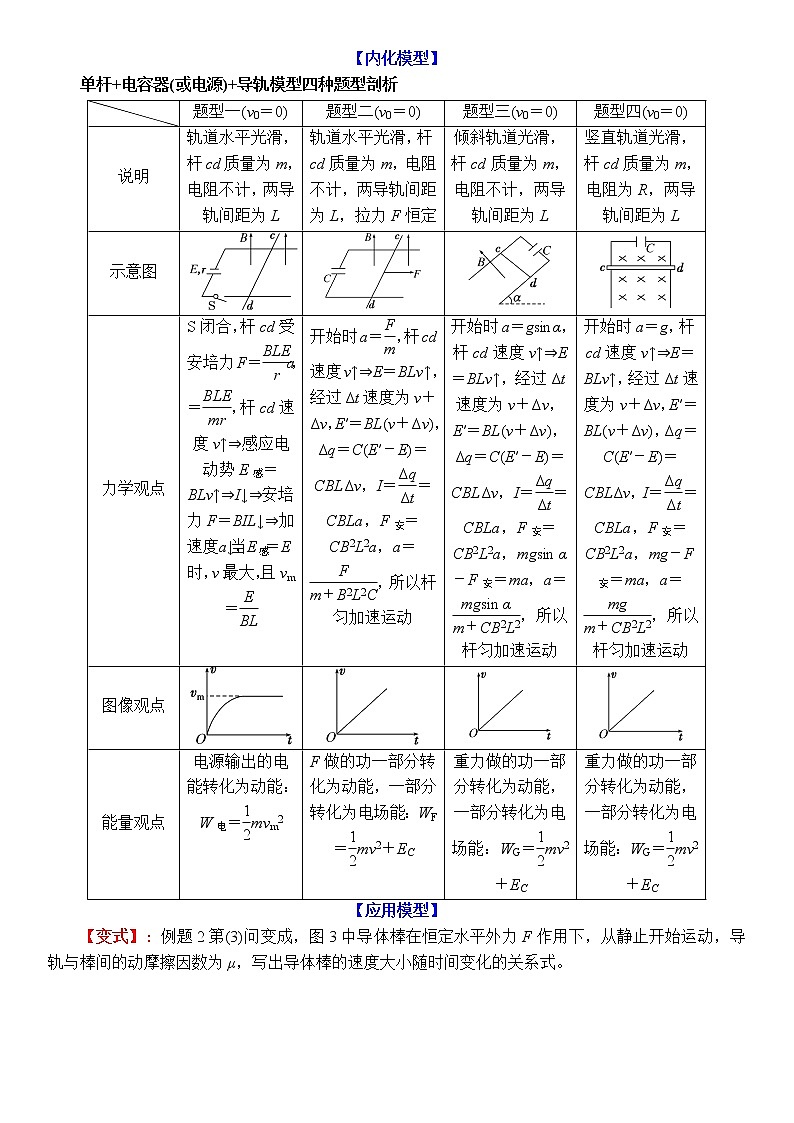 【内化模型】
单杆+电容器(或电源)+导轨模型四种题型剖析
题型一(v0=0)
题型二(v0=0)
题型三(v0=0)
题型四(v0=0)
说明
轨道水平光滑,
杆cd质量为m,
电阻不计,两导
轨间距为L
轨道水平光滑,杆
cd质量为m,电阻
不计,两导轨间距
为L,拉力F恒定
倾斜轨道光滑,
杆cd质量为m,
电阻不计,两导
轨间距为L
竖直轨道光滑,
杆cd质量为m,
电阻为R,两导
轨间距为L
示意图
B c
E,r
S d
B c
C F
d
c C
B d
α
C
c d
力学观点
S闭合,杆cd受
安培力F=BLE/r,a
=BLE/mr,杆cd速
度v↑⇒感应电
动势E感=
BLv↑⇒I↓⇒安培
力F=BIL↓⇒加
速度a↓,当E感=E
时,v最大,且vm
=E/BL
开始时a=F/m,杆cd
速度v↑⇒E=BLv↑,
经过Δt速度为v+
Δv,E′=BL(v+Δv),
Δq=C(E′-E)=
CBLΔv,I=Δq/Δt=
CBLa,F安=
CB²L²a,a=
F/(m+B²L²C),所以杆
匀加速运动
开始时a=gsin α,
杆cd速度v↑⇒E
=BLv↑,经过Δt
速度为v+Δv,
E′=BL(v+Δv),
Δq=C(E′-E)=
CBLΔv,I=Δq/Δt=
CBLa,F安=
CB²L²a,mgsin α
-F安=ma,a=
mgsin α/(m+CB²L²),所以
杆匀加速运动
开始时a=g,杆
cd速度v↑⇒E=
BLv↑,经过Δt速
度为v+Δv,E′=
BL(v+Δv),Δq=
C(E′-E)=
CBLΔv,I=Δq/Δt=
CBLa,F安=
CB²L²a,mg-F
安=ma,a=
mg/(m+CB²L²),所以
杆匀加速运动
图像观点
v
vm
O t
v
O t
v
O t
v
O t
能量观点
电源输出的电
能转化为动能:
W电=1/2mvm²
F做的功一部分转
化为动能,一部分
转化为电场能:WF
=1/2mv²+EC
重力做的功一部
分转化为动能,
一部分转化为电
场能:WG=1/2mv²
+EC
重力做的功一部
分转化为动能,
一部分转化为电
场能:WG=1/2mv²
+EC
【应用模型】
【变式】:例题2第(3)问变成,图3中导体棒在恒定水平外力F作用下,从静止开始运动,导
轨与棒间的动摩擦因数为μ,写出导体棒的速度大小随时间变化的关系式。